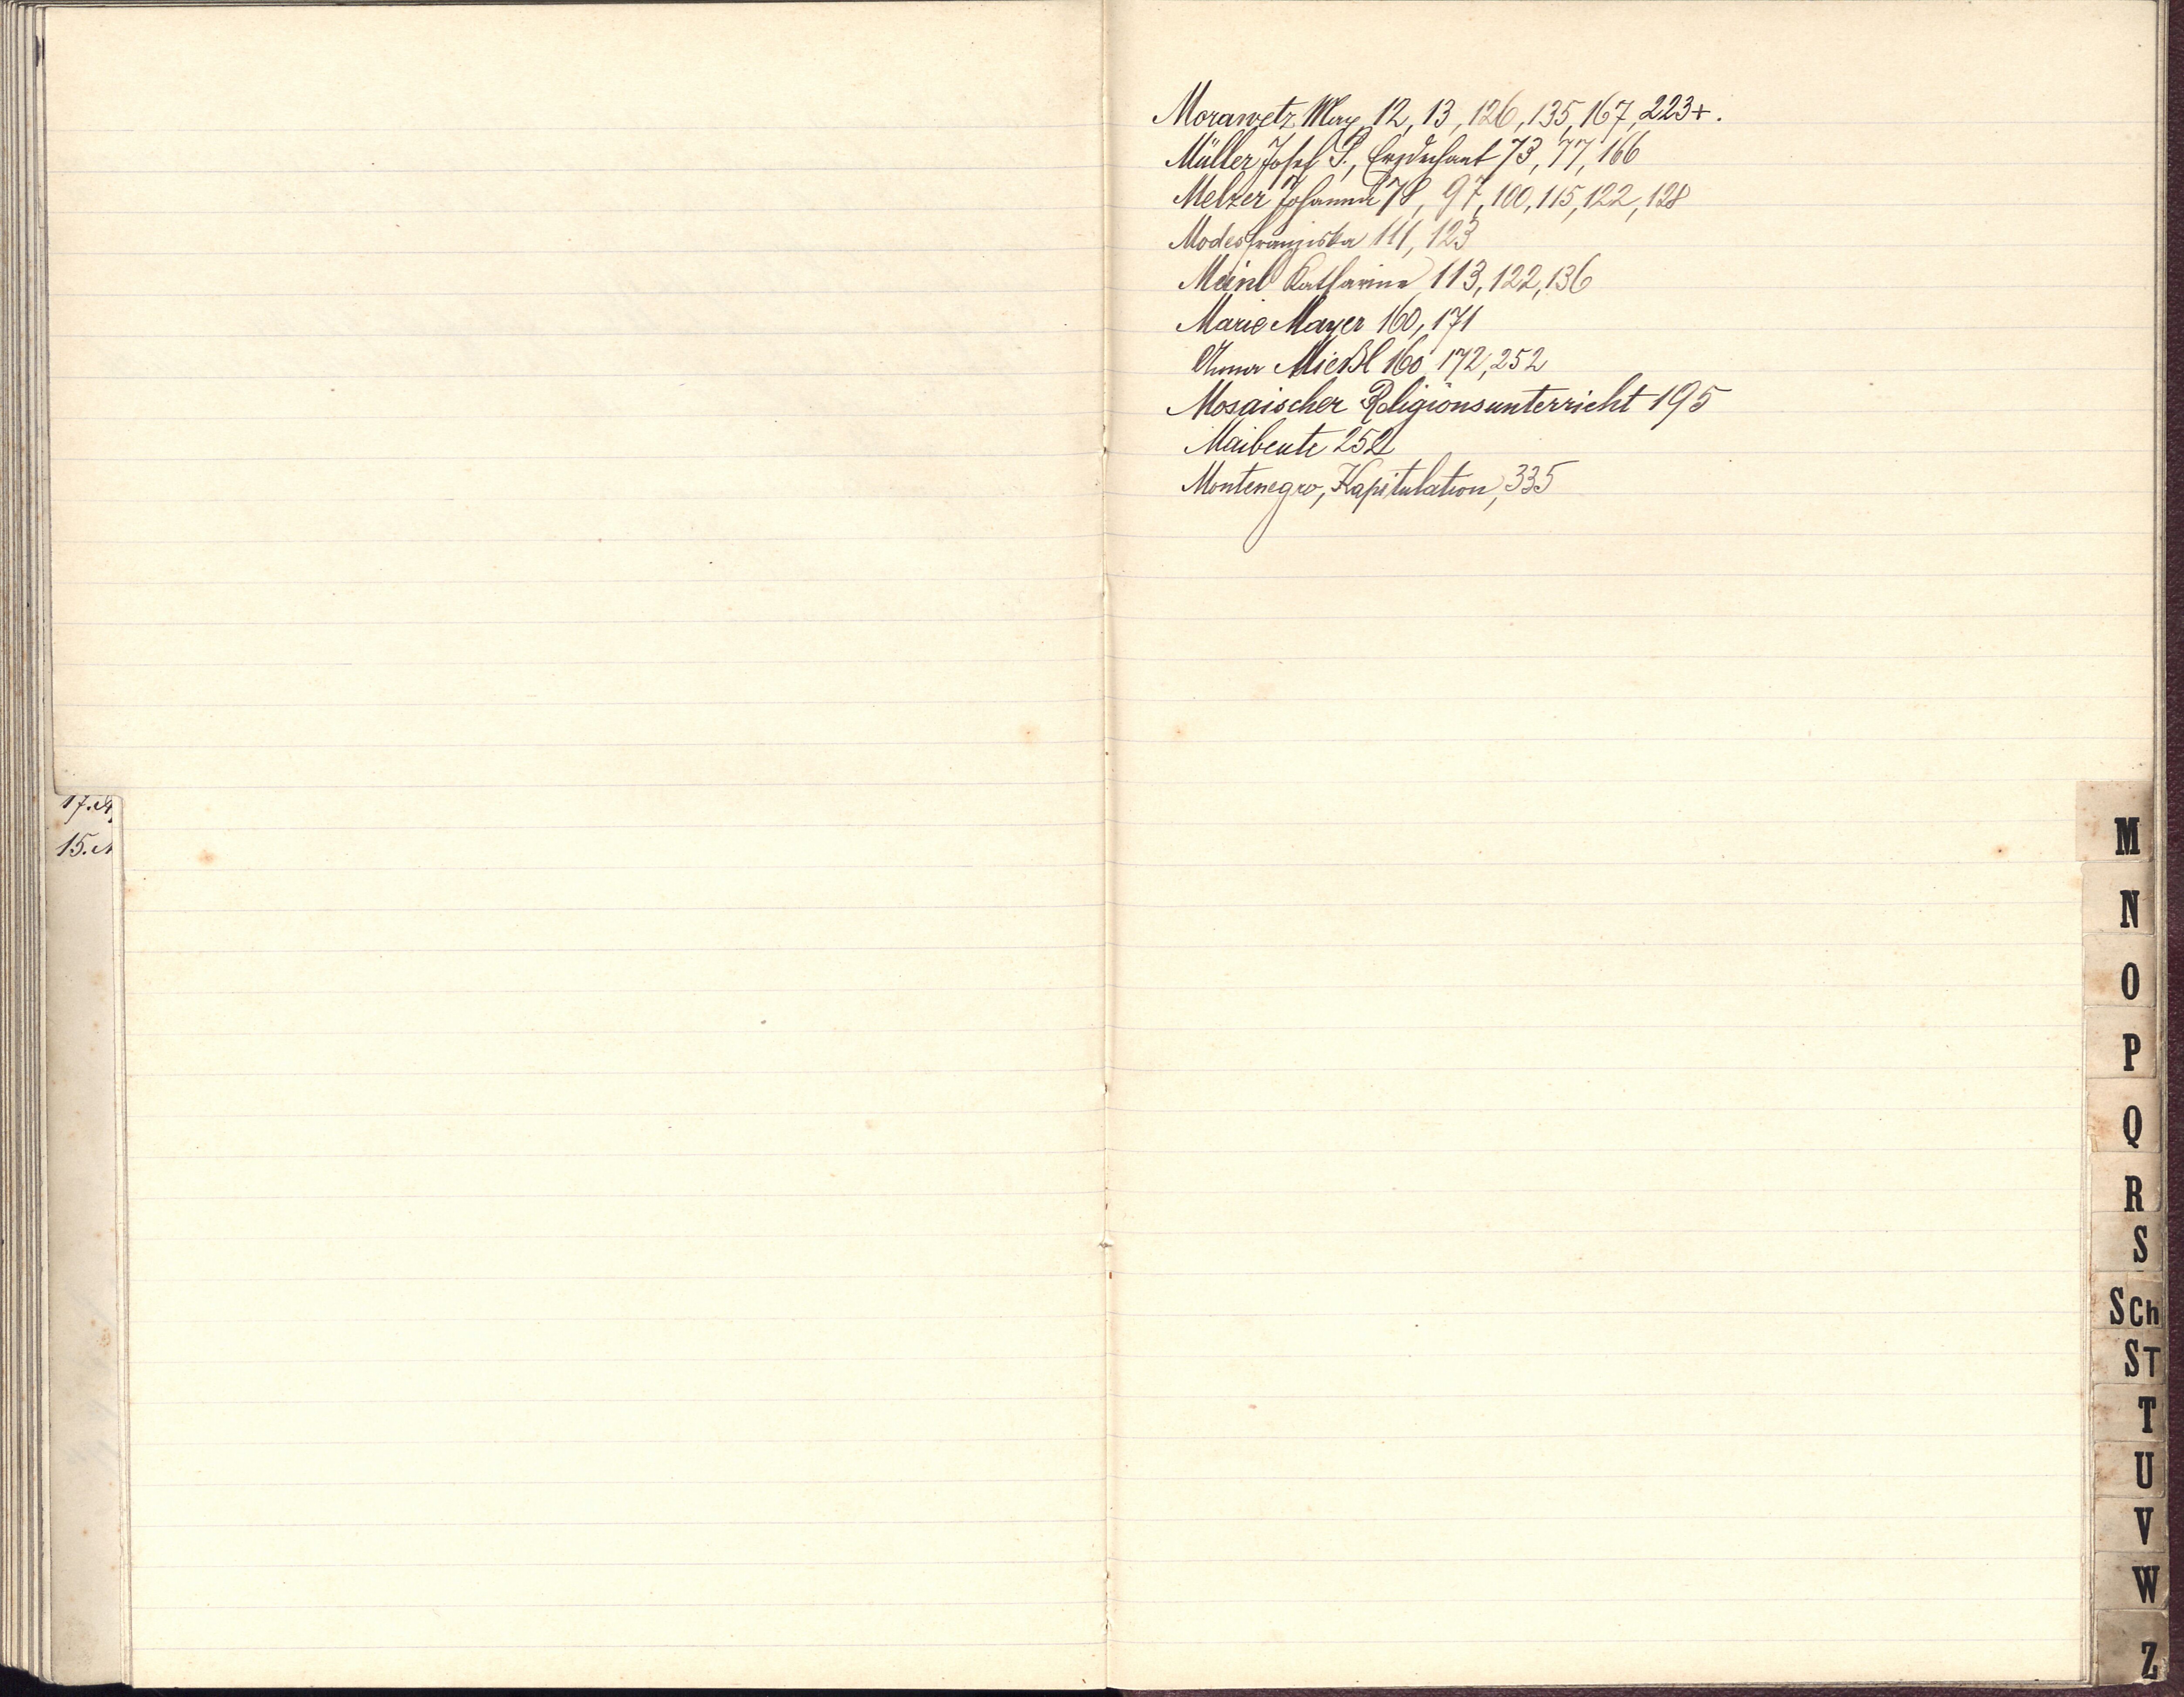 17.
15.
Morawetz Max, 12, 13, 126, 135, 167, 223+.
Müller Josef P., Erzdechant 73, 77, 166
Melzer Johanna 78, 97, 100, 115, 122, 128
Modes Franziska 111, 123
Meinl Katharina 113, 122, 136
Marie Mayer 160, 171
Anna Mießl 160 172, 252
Mosaischer Religionsunterricht 195
Maibeute 252
Montenegro, Kapitulation, 335
M
N
O
P
Q
R
S
Sch
ST
T
U
V
W
Z